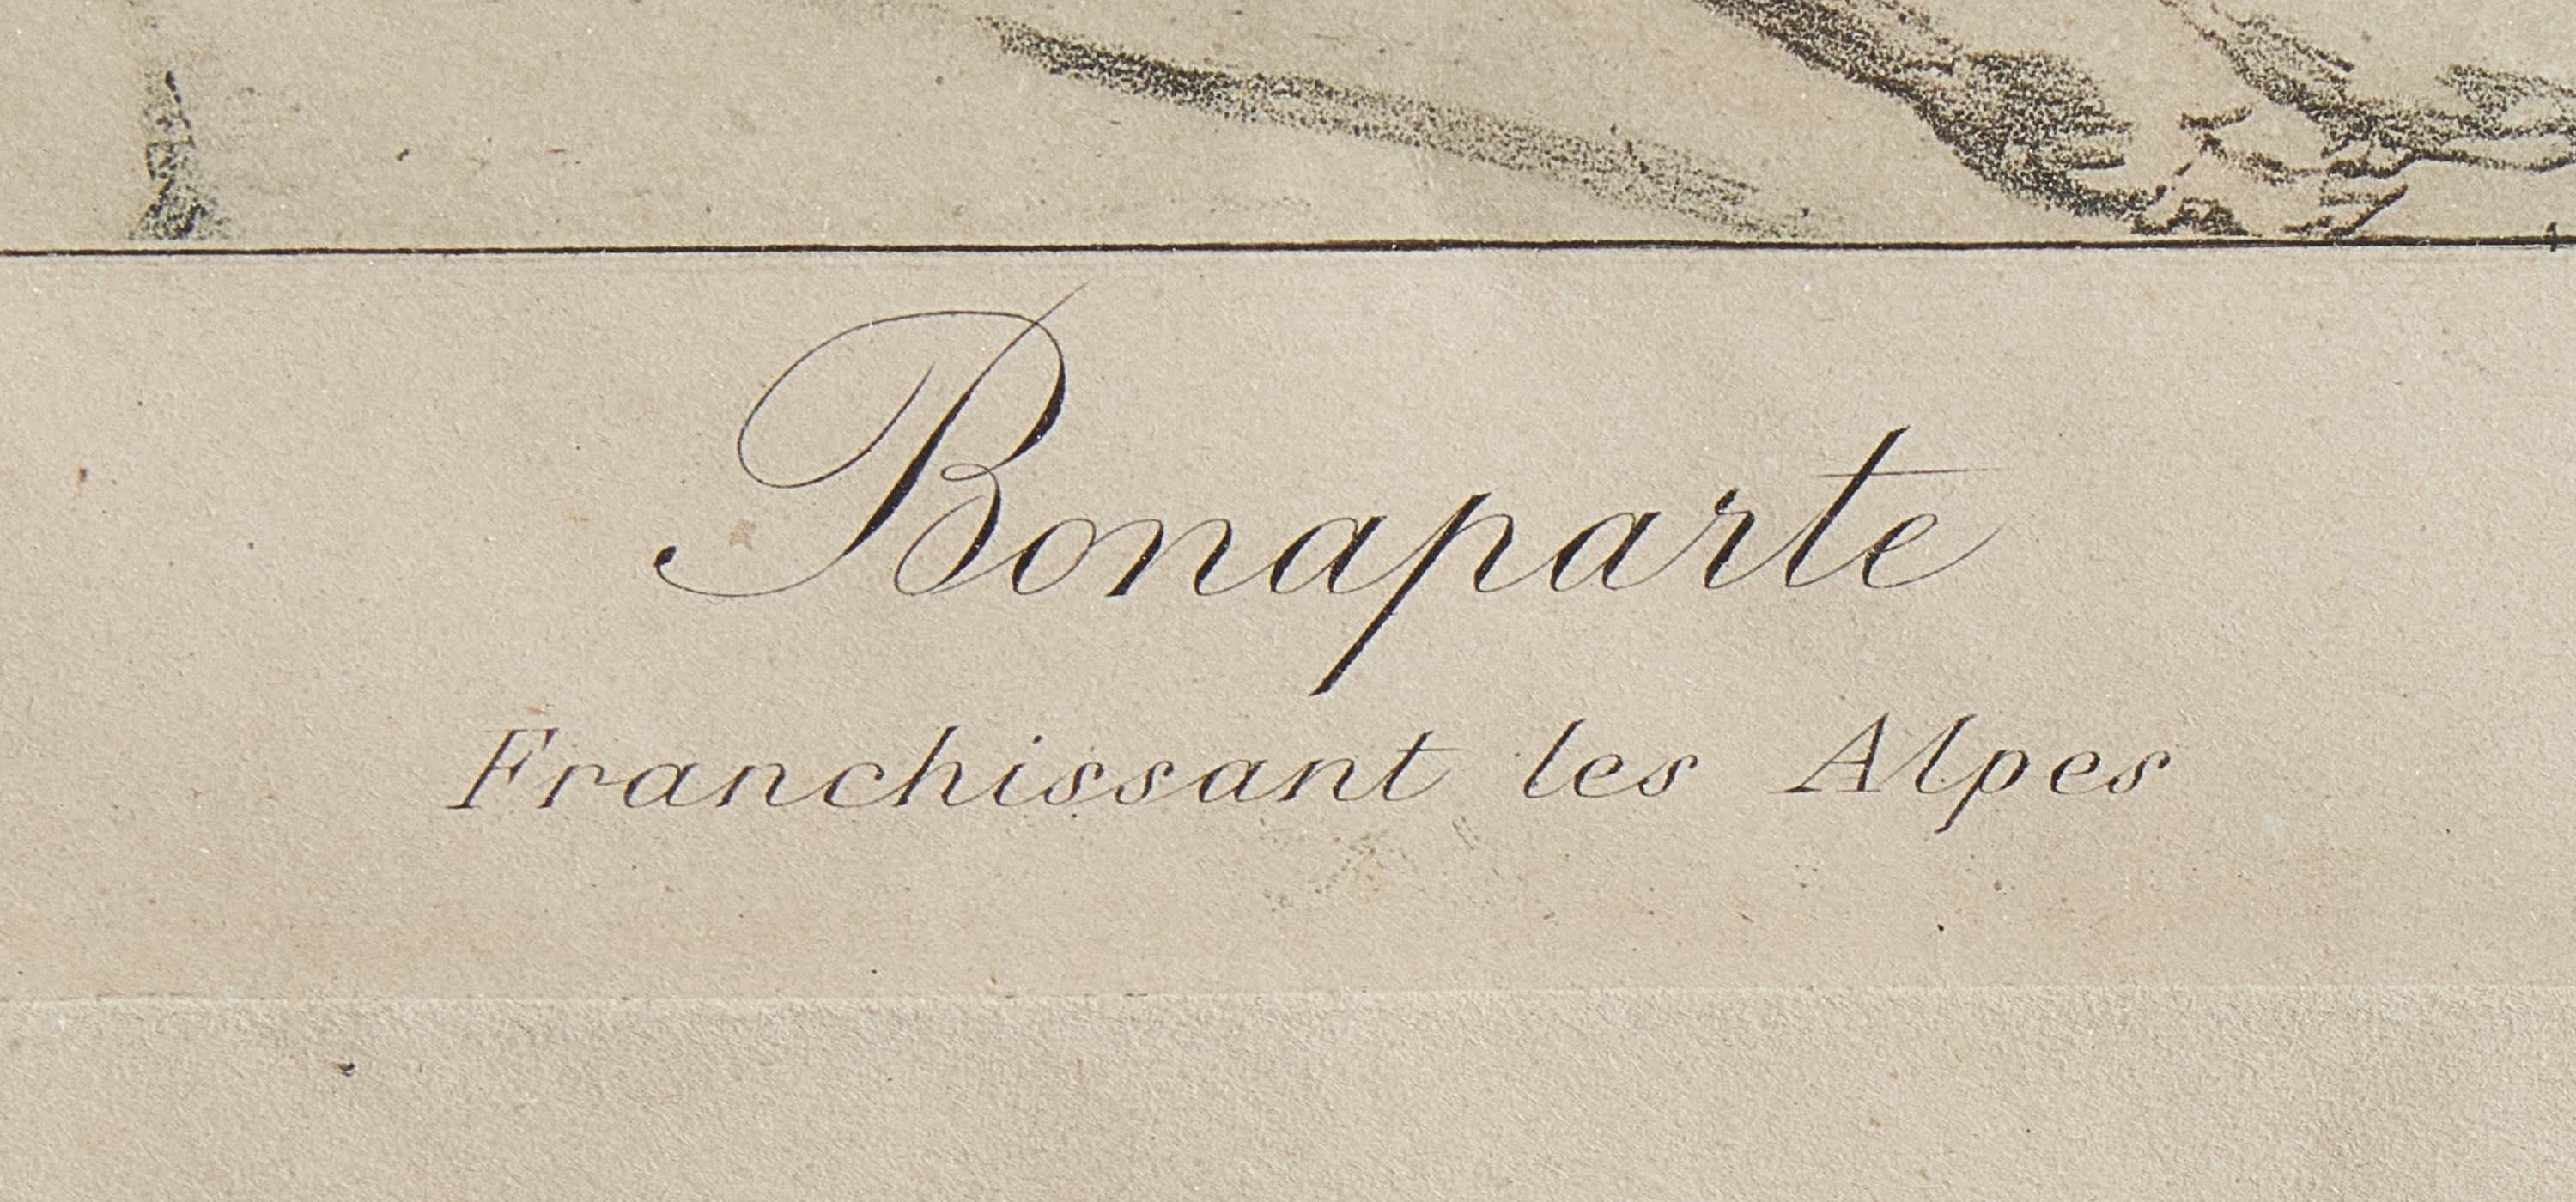 Bonaparte
Franchissant les Alpes